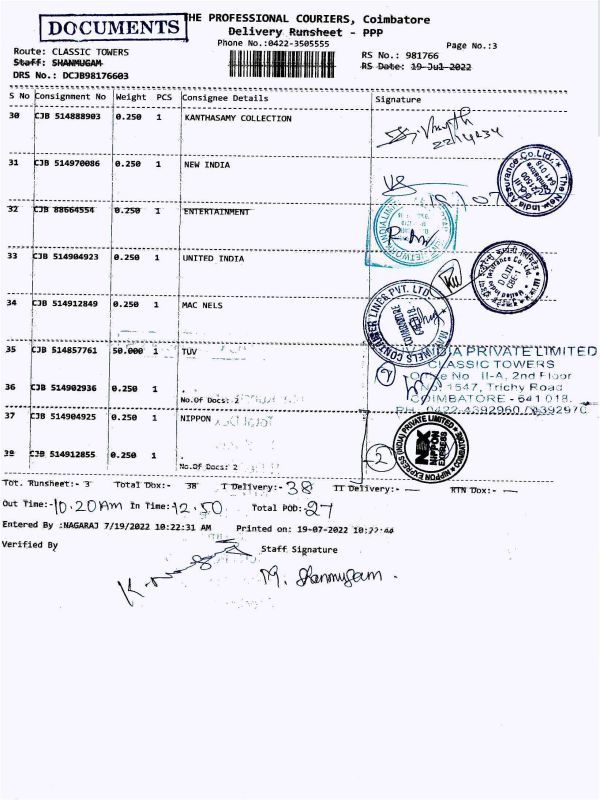 DOCUMENTS
THE PROFESSIONAL COURIERS, Coimbatore
Delivery Runsheet - PPP
Phone No.:0422-3505555
Page No.:3
Route: CLASSIC TOWERS
RS No.: 981766
Staff: SHANMUGAM
RS Date: 19-Jul-2022
DRS No.: DCJB98176603
S No Consignment No Weight PCS Consignee Details Signature
30 CJB 514888903 0.250 1 KANTHASAMY COLLECTION
31 CJB 514970086 0.250 1 NEW INDIA
32 CJB 88664554 0.250 1 ENTERTAINMENT
33 CJB 514904923 0.250 1 UNITED INDIA
34 CJB 514912849 0.250 1 MAC NELS
35 CJB 514857761 50.000 1 TUV
INDIA PRIVATE LIMITED
CLASSIC TOWERS
Office No II-A, 2nd Floor
36 CJB 514902936 0.250 1
No. 1547, Trichy Road
No.Of Docs: 2
COIMBATORE - 641 018.
37 CJB 514904925 0.250 1 NIPPON
NIPPON EXPRESS (INDIA) PRIVATE LIMITED
NEX NIPPON EXPRESS
38 CJB 514912855 0.250 1
2
No.Of Docs: 2
Tot. Runsheet:- 3 Total Dox:- 38 I Delivery:- 38 II Delivery:- — RTN Dox:- —
Out Time:- 10.20 Am In Time:- 12.50 Total POD:- 27
Entered By :NAGARAJ 7/19/2022 10:22:31 AM Printed on: 19-07-2022 10:22:44
Verified By Staff Signature
M. Shanmugam.